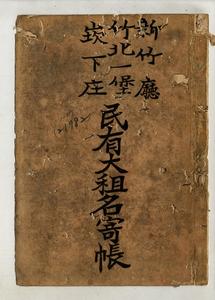 新竹廳
竹北一堡
崁下庄
民有大租名寄帳